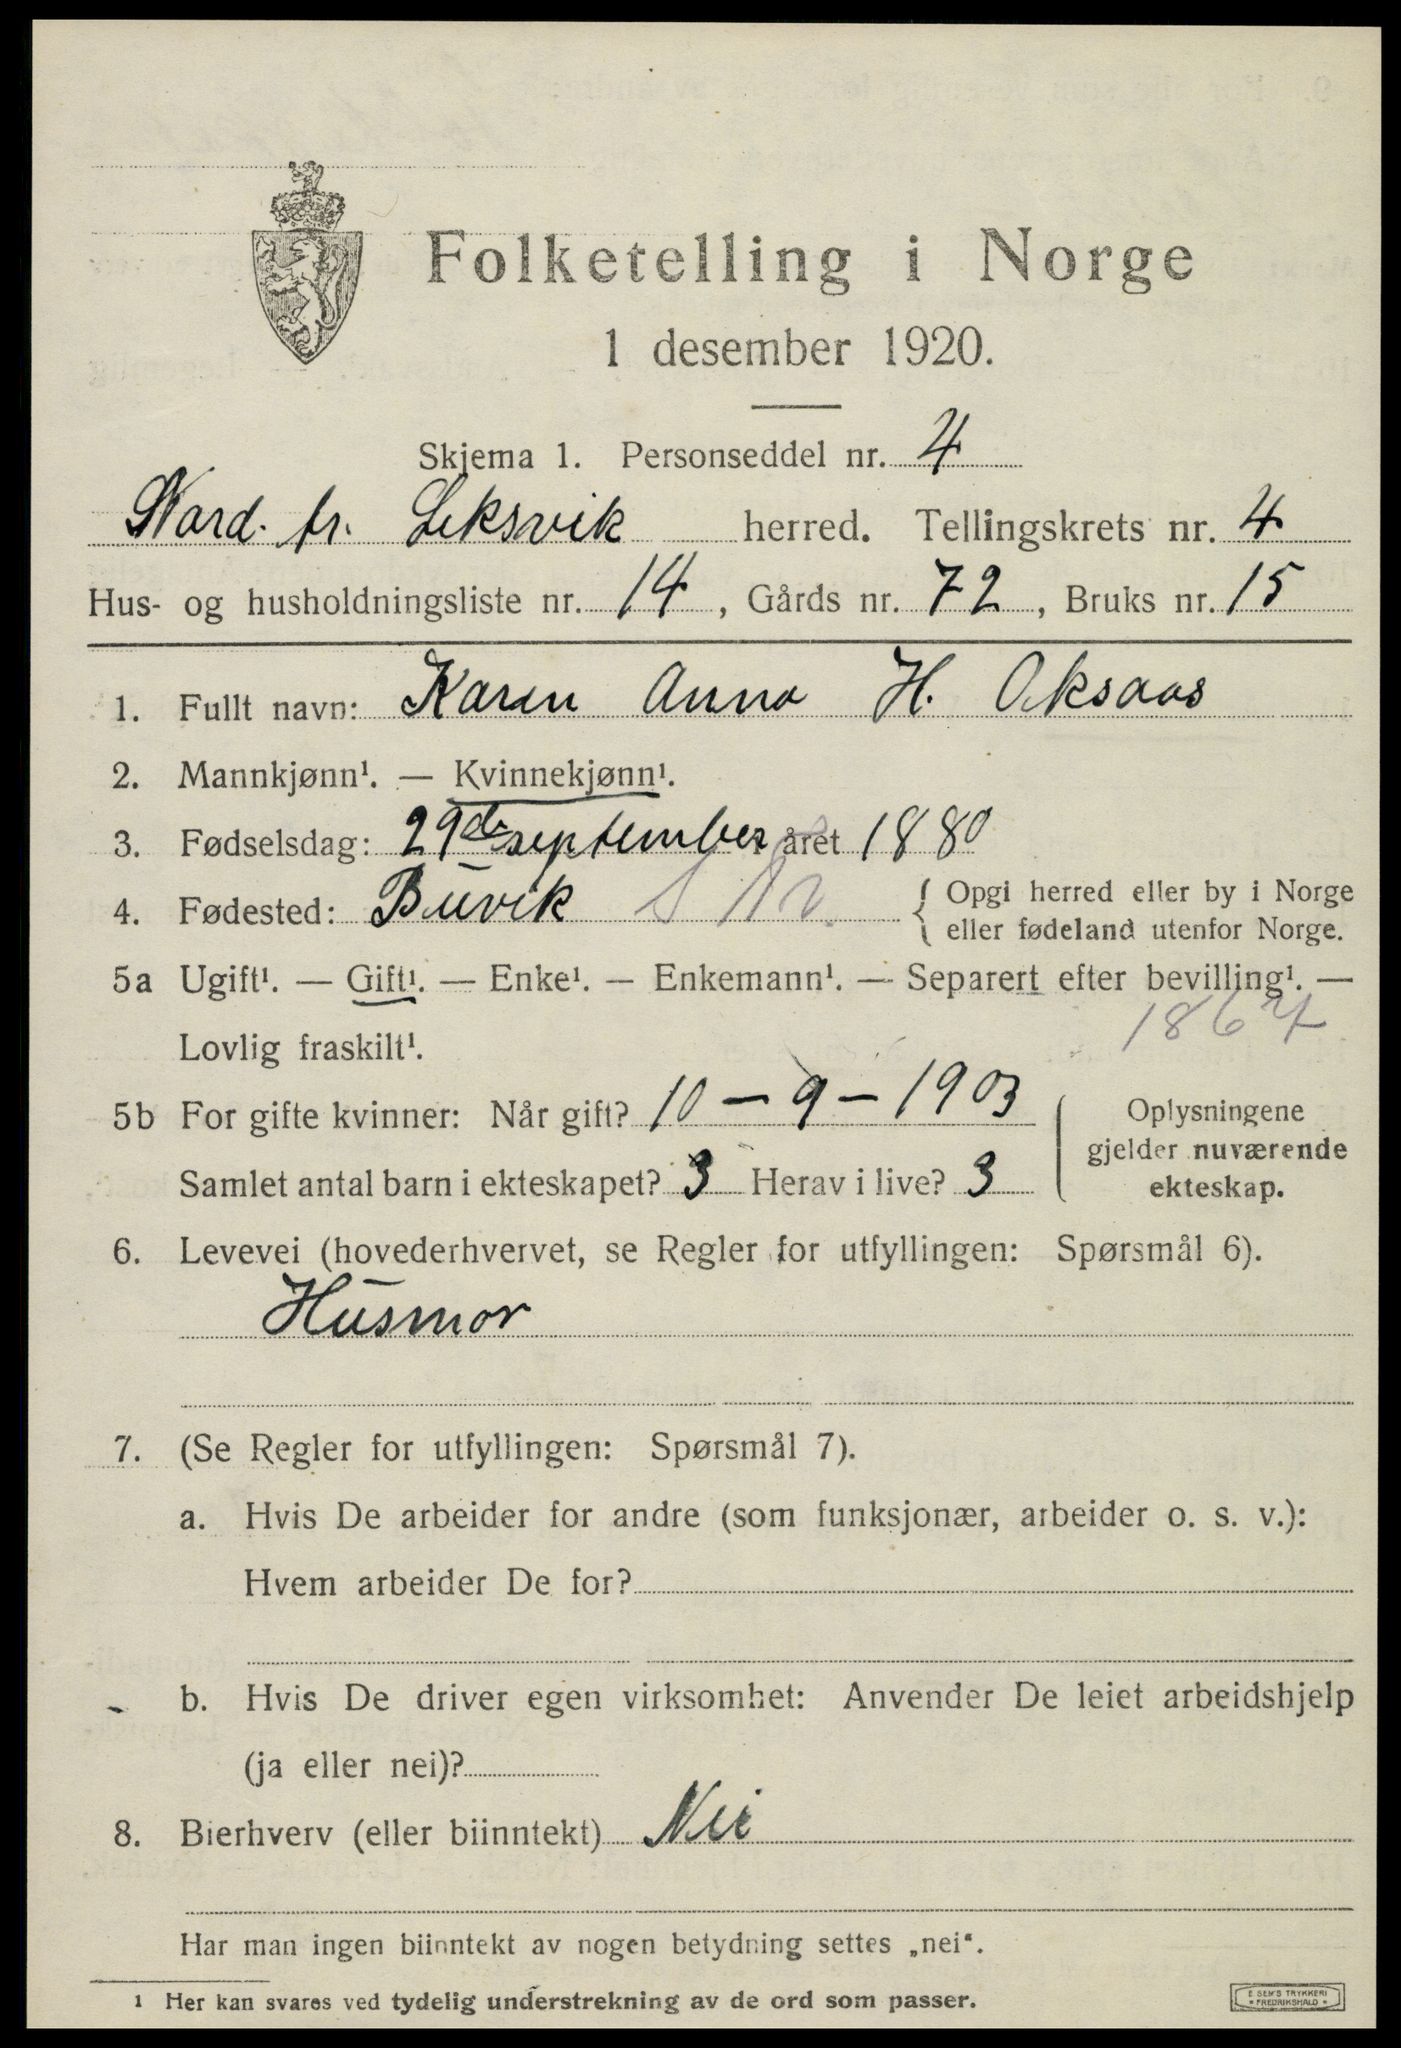 Folketelling i Norge
1 desember 1920.
Skjema 1. Personseddel nr. 4
Nord. tr. Leksvik herred. Tellingskrets nr. 4
Hus- og husholdningsliste nr. 14, Gårds nr. 72, Bruks nr. 15
1. Fullt navn: Karen Anna H. Oksaas
2. Mannkjønn¹. — Kvinnekjønn¹.
3. Fødselsdag: 29de september året 1880
4. Fødested: Buvik S Tr. { Opgi herred eller by i Norge
eller fødeland utenfor Norge.
5a Ugift¹. — Gift¹. — Enke¹. — Enkemann¹. — Separert efter bevilling¹. —
Lovlig fraskilt¹. 1867
5b For gifte kvinner: Når gift? 10 – 9 – 1903
Samlet antal barn i ekteskapet? 3 Herav i live? 3
Oplysningene
gjelder nuværende
ekteskap.
6. Levevei (hovederhvervet, se Regler for utfyllingen: Spørsmål 6).
Husmor
7. (Se Regler for utfyllingen: Spørsmål 7).
a. Hvis De arbeider for andre (som funksjonær, arbeider o. s. v.):
Hvem arbeider De for?
b. Hvis De driver egen virksomhet: Anvender De leiet arbeidshjelp
(ja eller nei)?
8. Bierhverv (eller biinntekt) Nei
Har man ingen biinntekt av nogen betydning settes „nei".
1 Her kan svares ved tydelig understrekning av de ord som passer.
E SEM'S TRYKKERI
* FREDRIKSHALD *